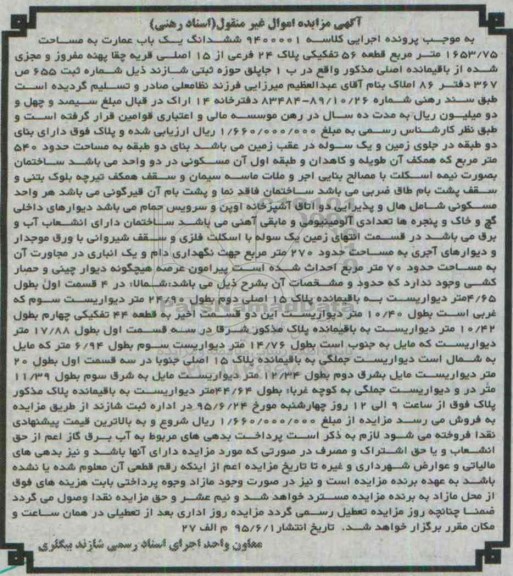 آگهی مزایده اموال غیر منقول(اسناد رهنی)
به موجب پرونده اجرایی کلاسه ۹۴۰۰۰۰۱ ششدانگ یک باب عمارت به مساحت
۱۶۵۳/۷۵ متر مربع قطعه ۵۶ تفکیکی پلاک ۲۴ فرعی از ۱۵ اصلی قریه چقا پهنه مفروز و مجزی
شده از باقیمانده اصلی مذکور واقع در ب ۱ جاپلق حوزه ثبتی شازند ذیل شماره ثبت ۶۵۵ ص
۳۶۷ دفتر ۸۶ املاک بنام آقای عبدالعظیم میرزایی فرزند نظامعلی صادر و تسلیم گردیده است
طبق سند رهنی شماره ۸۹/۱۰/۲۶-۸۳۴۸۴ دفترخانه ۱۴ اراک در قبال مبلغ سیصد و چهل و
دو میلیون ریال به مدت ده سال در رهن موسسه مالی و اعتباری قوامین قرار گرفته است و
طبق نظر کارشناس رسمی به مبلغ ۱/۶۶۰/۰۰۰/۰۰۰ ریال ارزیابی شده و پلاک فوق دارای بنای
دو طبقه در جلوی زمین و یک سوله در عقب زمین می باشد بنای دو طبقه به مساحت حدود ۵۴۰
متر مربع که همکف آن طویله و کاهدان و طبقه اول آن مسکونی در دو واحد می باشد ساختمان
بصورت نیمه اسکلت با مصالح بنایی اجر و ملات ماسه سیمان و سقف همکف تیرچه بلوک بتنی و
سقف پشت بام طاق ضربی می باشد ساختمان فاقد نما و پشت بام آن قیرگونی می باشد هر واحد
مسکونی شامل هال و پذیرایی دو اتاق آشپزخانه اوپن و سرویس حمام می باشد دیوارهای داخلی
گچ و خاک و پنجره ها تعدادی آلومینیومی و مابقی آهنی می باشد ساختمان دارای انشعاب آب و
برق می باشد در قسمت انتهای زمین یک سوله با اسکلت فلزی و سقف شیروانی با ورق موجدار
و دیوارهای آجری به مساحت حدود ۲۷۰ متر مربع جهت نگهداری دام و یک انباری در مجاورت آن
به مساحت حدود ۷۰ متر مربع احداث شده است پیرامون عرصه هیچگونه دیوار چینی و حصار
کشی وجود ندارد که حدود و مشخصات آن بشرح ذیل می باشد:شمالا: در ۴ قسمت اول بطول
۴/۶۵متر دیواریست به باقیمانده پلاک ۱۵ اصلی دوم بطول ۲۲/۹۰ متر دیواریست سوم که
غربی است بطول ۱۰/۴۰ متر دیواریست این دو قسمت اخیر به قطعه ۴۴ تفکیکی چهارم بطول
۱۰/۴۲ متر دیواریست به باقیمانده پلاک مذکور شرقا در سه قسمت اول بطول ۱۷/۸۸ متر
دیواریست که مایل به جنوب است بطول ۱۴/۷۶ متر دیواریست سوم بطول ۶/۹۴ متر که مایل
به شمال است دیواریست جملگی به باقیمانده پلاک ۱۵ اصلی جنوبا در سه قسمت اول بطول ۲۰
متر دیواریست مایل بشرق دوم بطول ۱۲/۳۴ متر دیواریست مایل به شرق سوم بطول ۱۱/۳۹
متر در و دیواریست جملگی به کوچه غربا: بطول ۴۴/۶۴متر دیواریست به باقیمانده پلاک مذکور
پلاک فوق از ساعت ۹ الی ۱۲ روز چهارشنبه مورخ ۹۵/۶/۲۴ در اداره ثبت شازند از طریق مزایده
به فروش می رسد مزایده از مبلغ ۱/۶۶۰/۰۰۰/۰۰۰ ریال شروع و به بالاترین قیمت پیشنهادی
نقدا فروخته می شود لازم به ذکر است پرداخت بدهی های مربوط به آب برق گاز اعم از حق
انشعاب و یا حق اشتراک و مصرف در صورتی که مورد مزایده دارای آنها باشد و نیز بدهی های
مالیاتی و عوارض شهرداری و غیره تا تاریخ مزایده اعم از اینکه رقم قطعی آن معلوم شده یا نشده
باشد به عهده برنده مزایده است و نیز در صورت وجود مازاد وجوه پرداختی بابت هزینه های فوق
از محل مازاد به برنده مزایده مسترد خواهد شد و نیم عشر و حق مزایده نقدا وصول می گردد
ضمنا چنانچه روز مزایده تعطیل رسمی گردد مزایده روز اداری بعد از تعطیلی در همان ساعت و
مکان مقرر برگزار خواهد شد. تاریخ انتشار۹۵/۶/۱ م الف ۲۷
معاون واحد اجرای اسناد رسمی شازند بیگلری